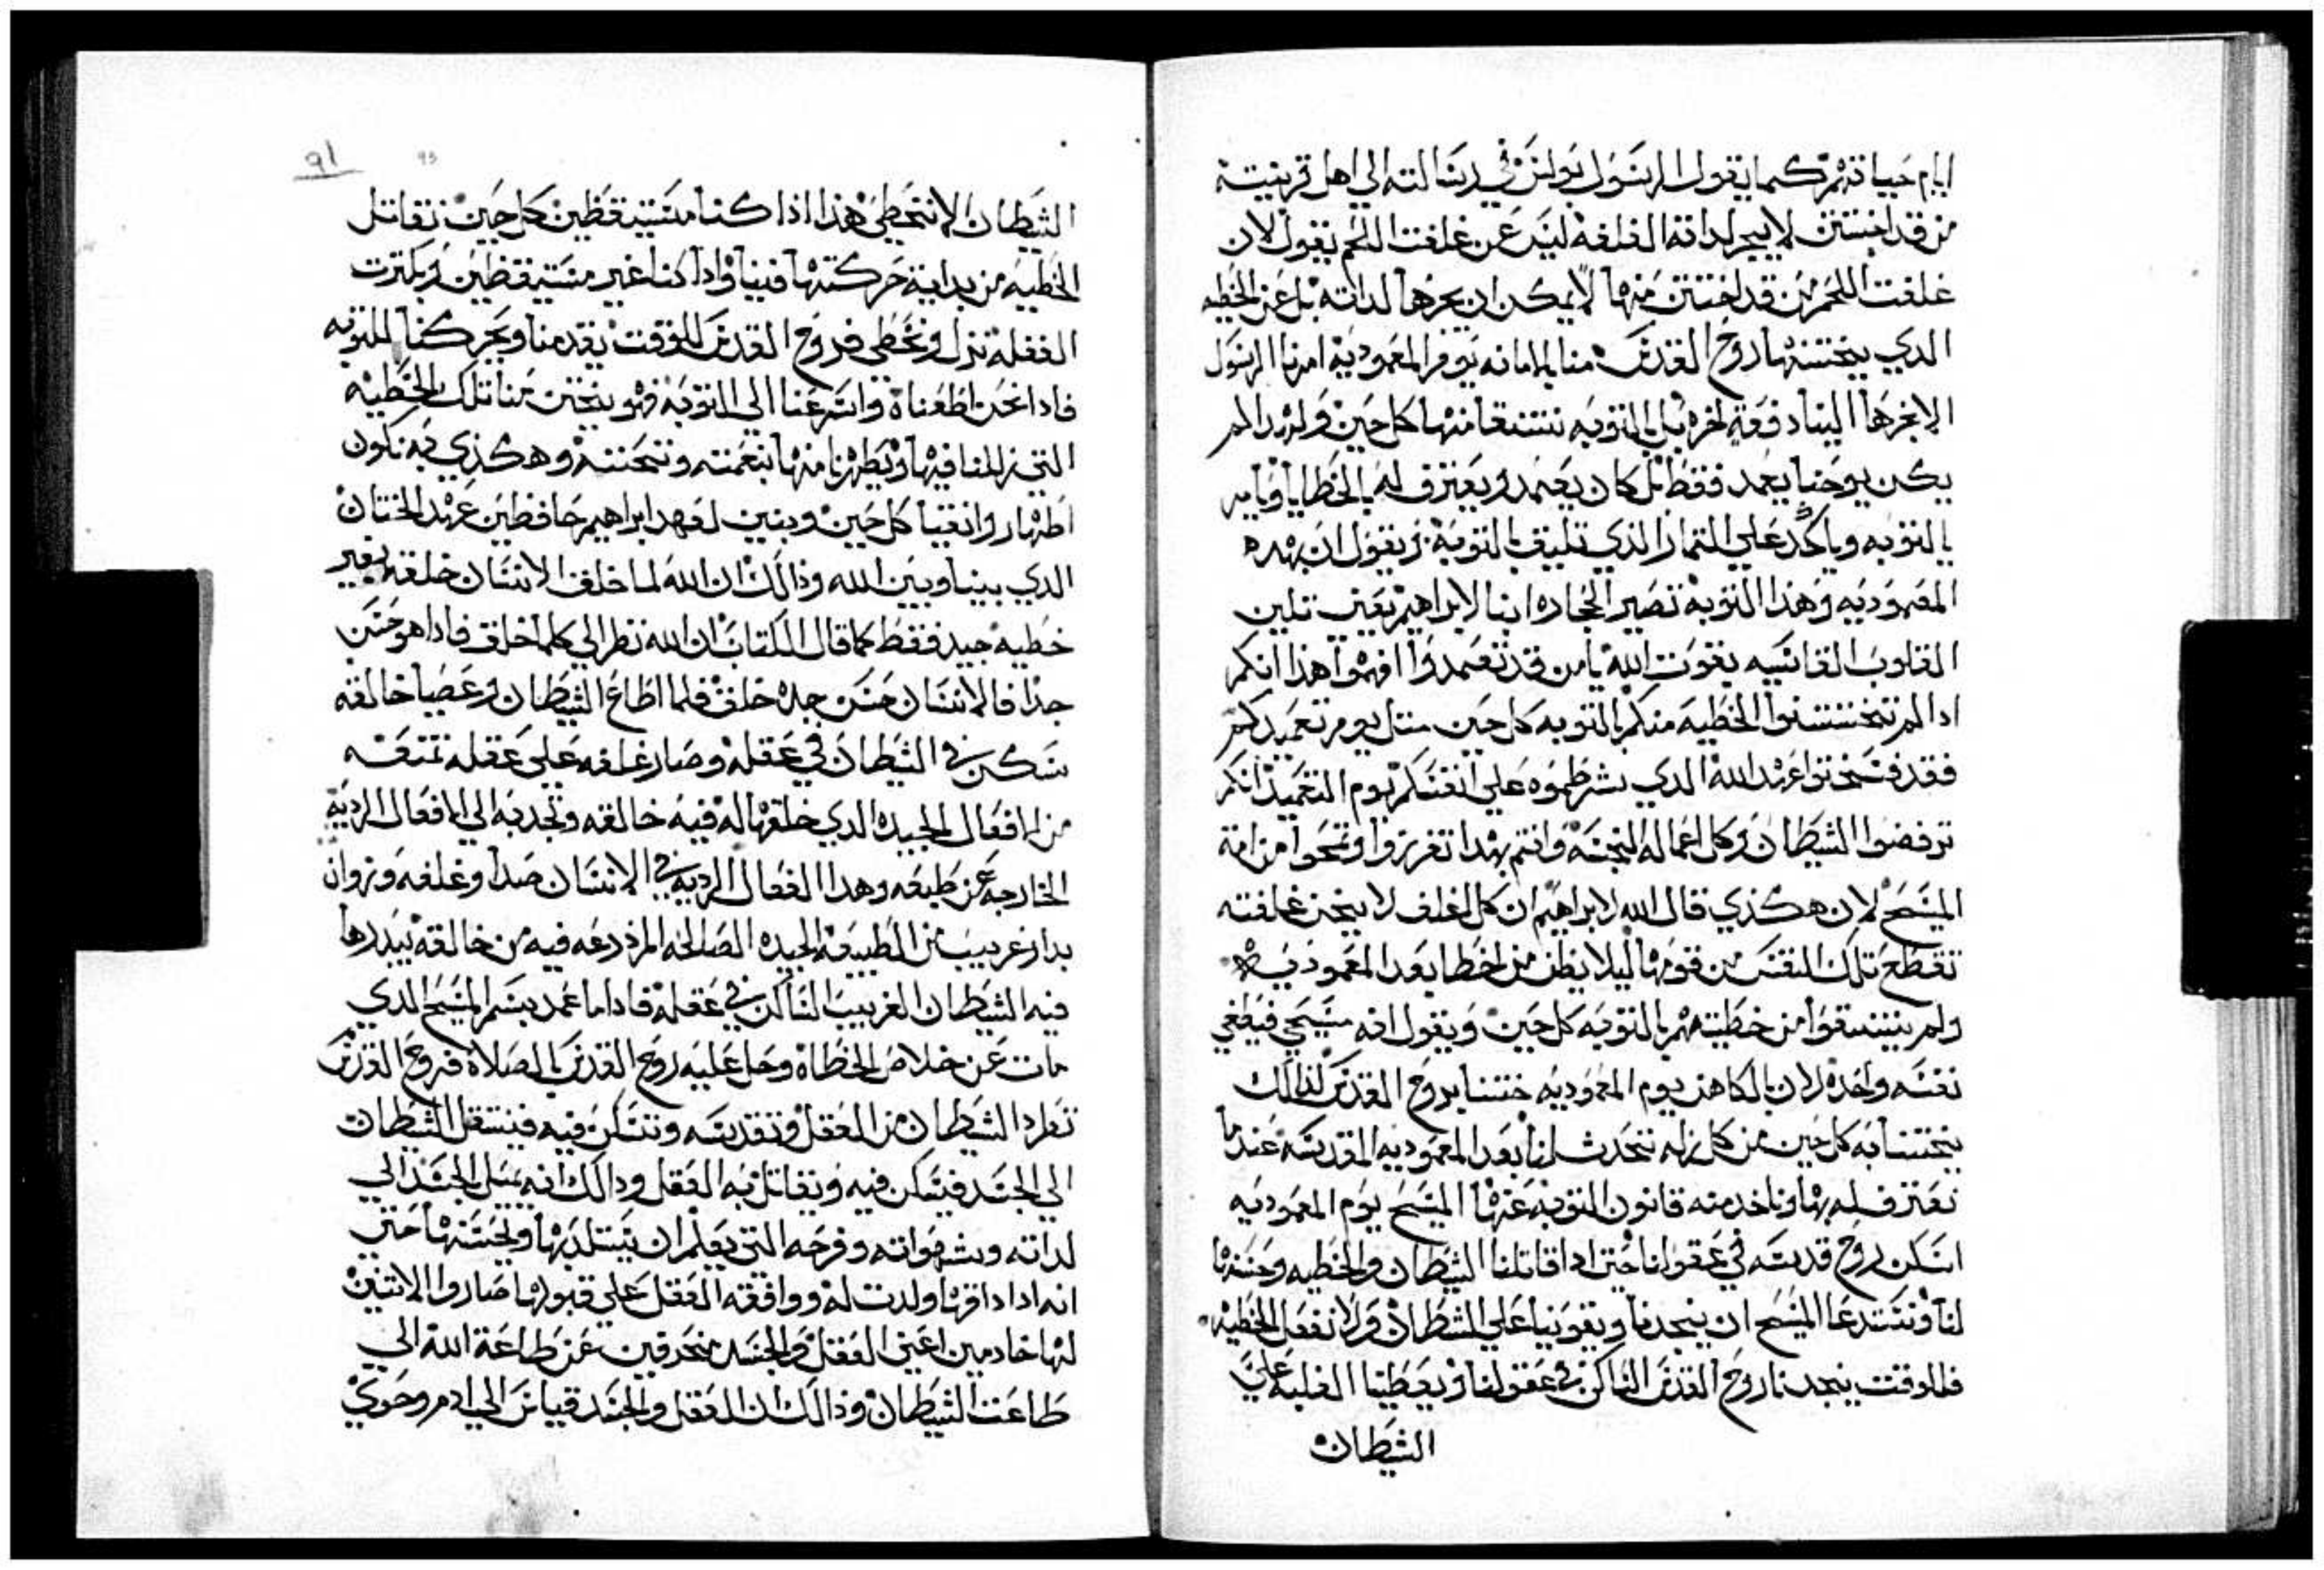 ايام حياتهم كما يقول الرسول بولس في رسالته الي اهل قرنيتة
من قد اختتن لا يجر لداته الغلفه ليس عن غلفت اللحم يقول لان
غلفت اللحم من قد اختتن منها لا يمكن ان يجرها لداته بل عن الخطيه
الدي يختنها روح القدس منا بالامانه يوم المعموديه امرنا الرسول
الا نجرها الينا دفعة اخره بل بالتوبه نستنقا منها كل حين ولهدا لم
يكن يوحنا يعمد فقط بل كان يعمد ويعترف له بالخطايا ويامر
بالتوبه وياكد علي التمار الذي تليق بالتوبة ويقول ان بهده
المعموديه وهذا التوبة تصير الحجاره ابنا لابراهيم يعني تلين
القلوب القاسيه بقوت الله يا من قد تعمدوا افهموا هذا انكم
ادا لم تختتنوا الخطيه منكم بالتوبه كل حين متل يوم تعميدكم
فقد فسختوا عهد الله الدي شرطموه علي انفسكم يوم التعميد انكم
ترفضوا الشيطان وكل اعماله النجسة وانتم بهدا تغرروا وتمحوا من امة
المسيح لان هكذي قال الله لابراهيم ان كل اغلف لا يختن غلفته
تقطع تلك النفس من قومها ليلا يظن من اخطا بعد المعموديه
ولم يستنقوا من خطيتهم بالتوبه كل حين ويقول انه مسيحي فيطغي
نفسه واحده لان بالكاهن يوم المعموديه ختنا بروح القدس لذالك
يختنا به كل حين من كل زله تحدث لنا بعد المعموديه المقدسه عندما
نعترف له بها وناخد منه قانون التوبه عنها المسيح يوم المعموديه
اسكن روح قدسه في عقولنا حتي ادا قاتلنا الشيطان والخطيه وحسنها
لنا ونستدعا المسيح ان ينجدنا ويقوينا علي الشيطان ولا نفعل الخطيه
فللوقت ينجدنا روح القدس الساكن في عقولنا ويعطينا الغلبه علي
الشيطان
٩١
93
الشيطان الا نخطي هذا اذا كنا مستيقظين كل حين نقاتل
الخطيه من بداية حركتها فينا واذا كنا غير مستيقظين وبكترت
الغفله نزل ونخطي فروح القدس للوقت يقدمنا ويحركنا للتوبه
فادا نحن اطعناه واسرعنا الي التوبه فهو يختن منا تلك الخطيه
التي زللنا فيها ويطهرنا منها بنعمته وتحننه وهكذي به نكون
اطهار وانقيا كل حين وبنين لعهد ابراهيم حافظين عهد الختان
الدي بينا وبين الله وذالك ان الله لما خلق الانسان خلقه بغير
خطيه جيد فقط كما قال الكتاب ان الله نظر الي كلما خلق فادا هو حسن
جدا فالانسان حسن جدا خلق فلما اطاع الشيطان وعصا خالقه
سكن في الشيطان في عقله وصار غلفه علي عقله تمنعه
من الافعال الجيده الدي خلقها له فيه خالقه وتجدبه الي الافعال الرديه
الخارجه عن طبعه وهدا الفعال الرديه في الانسان صدا وغلفه وزوان
بدار غريب من الطبيعة الجيده الصالحه المزروعه فيه من خالقه يبدرها
فيه الشيطان الغريب الساكن في عقله فادا ما عمد بسم المسيح الدي
مات عن خلاص الخطاه وحل عليه روح القدس بالصلاة فروح القدس
تطرد الشيطان من العقل وتقدسه وتسكن فيه فينتقل الشيطان
الي الجسد فيسكن فيه ويقاتل به العقل ودالك انه يميل الجسد الي
لداته وشهواته وفرحه التي يعلم ان يستلد بها ويحسنها حتي
انه ادا داقها ولدت له ووافقه العقل علي قبولها صاروا الاتنين
لها خادمين اعني العقل والجسد منحرفين عن طاعة الله الي
طاعت الشيطان وذالك ان العقل والجسد قياس الي ادم وحوي